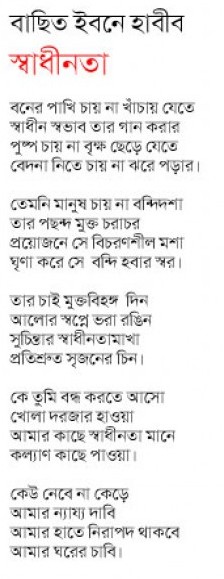 বাছিত ইবনে হাবীব
স্বাধীনতা
বনের পাখি চায় না খাঁচায় যেতে
স্বাধীন স্বভাব তার গান করার
পুষ্প চায় না বৃক্ষ ছেড়ে যেতে
বেদনা নিতে চায় না ঝরে পড়ার।
তেমনি মানুষ চায় না বন্দিদশা
তার পছন্দ মুক্ত চরাচর
প্রয়োজনে সে বিচরণশীল মশা
ঘৃণা করে সে বন্দি হবার স্বর।
তার চাই মুক্তবিহঙ্গ দিন
আলোর স্বপ্নে ভরা রঙিন
সুচিন্তার স্বাধীনতামাখা
প্রতিশ্রুত সৃজনের চিন।
কে তুমি বন্ধ করতে আসো
খোলা দরজার হাওয়া
আমার কাছে স্বাধীনতা মানে
কল্যাণ কাছে পাওয়া।
কেউ নেবে না কেড়ে
আমার ন্যায্য দাবি
আমার হাতে নিরাপদ থাকবে
আমার ঘরের চাবি।